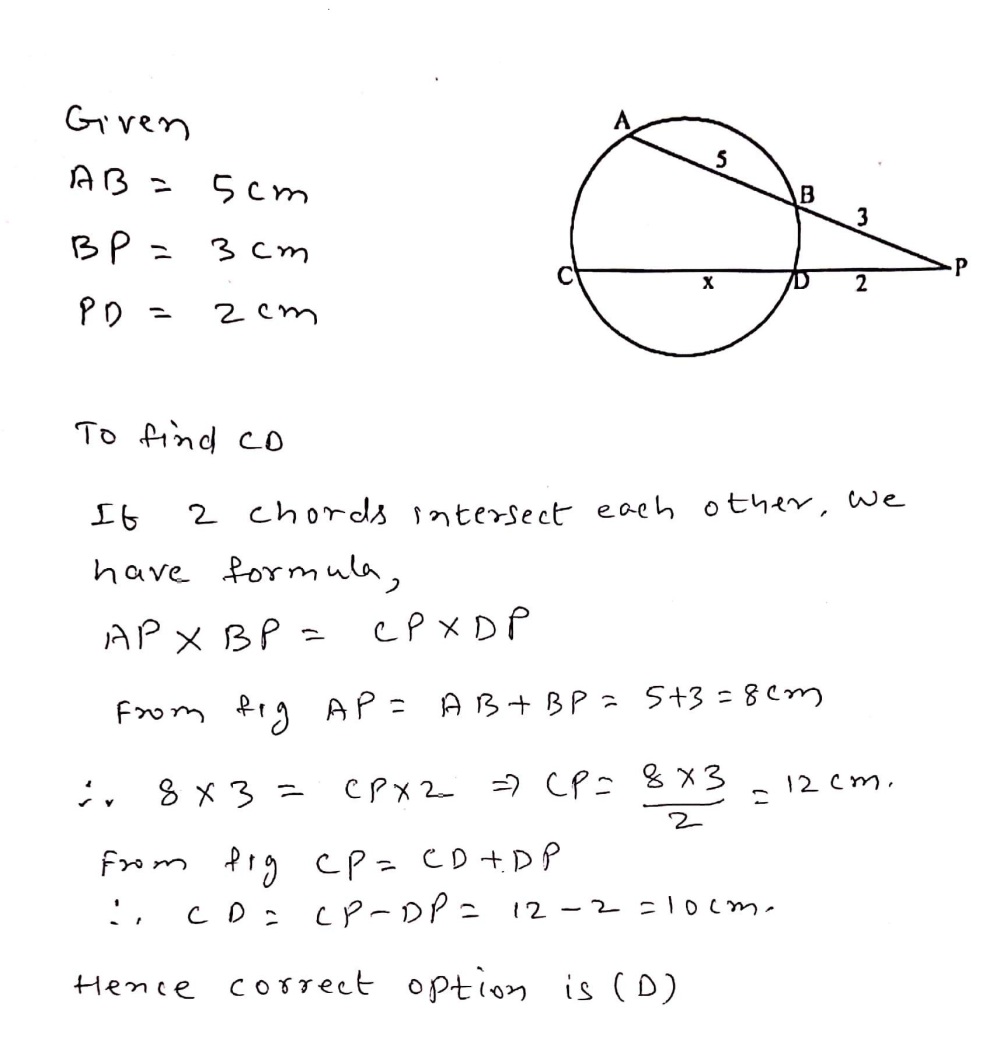 Given
AB = 5 cm
BP = 3 cm
PD = 2 cm
A
5
B
3
P
C
x
D
2
To find CD
If 2 chords intersect each other, we
have formula,
AP × BP = CP × DP
From fig AP = AB + BP = 5+3 = 8 cm
∴ 8 × 3 = CP × 2 ⇒ CP = 8 × 3 / 2 = 12 cm.
From fig CP = CD + DP
∴ CD = CP - DP = 12 - 2 = 10 cm.
Hence correct option is (D)